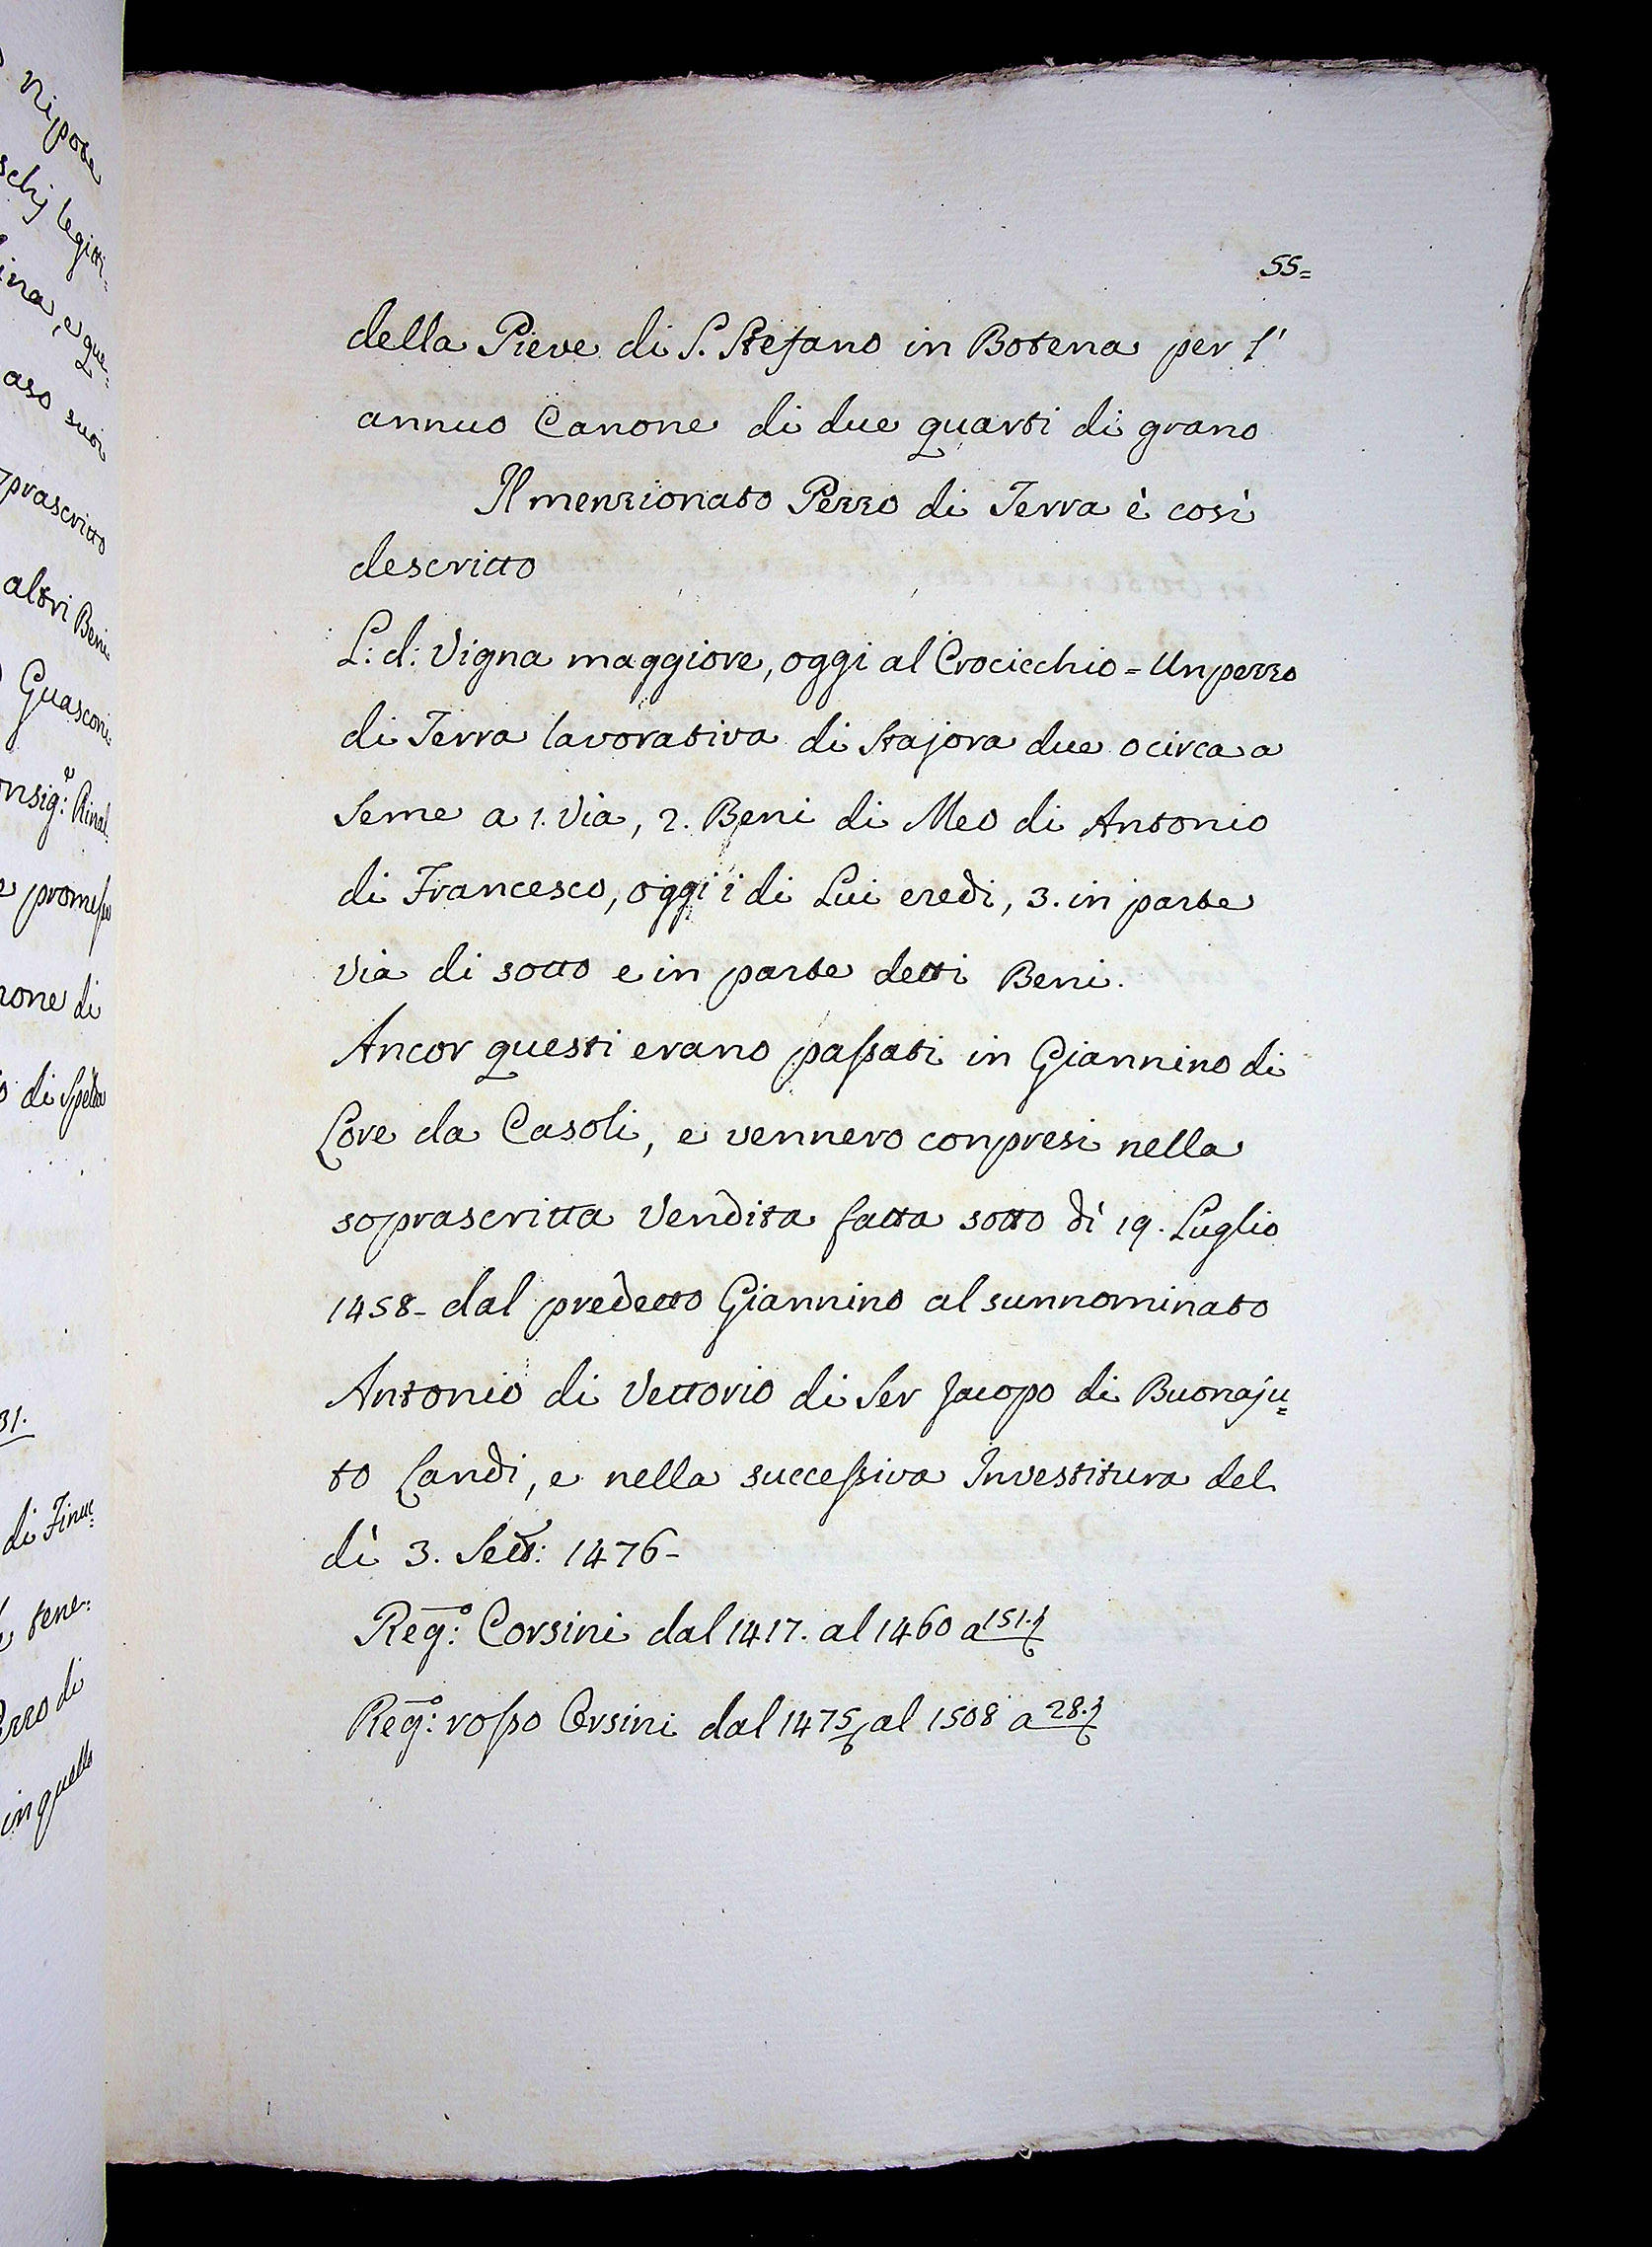 Nipote
schj legitti=
ina, e que=
aso suoi
prascritto
altri Beni
Guasconi
onsig:e Rinal
promesso
none di
di Spelta
31.
di Finuc=
tene=
ezzo di
in quello
55=
della Pieve di S. Stefano in Botena per l'
annuo Canone di due quarti di grano
Il menzionato Pezzo di Terra è così
descritto
L: d: Vigna maggiore, oggi al Crocicchio = Un pezzo
di Terra lavorativa di Stajora due o circa a
Seme a 1. Via, 2. Beni di Meo di Antonio
di Francesco, oggi i di Lui eredi, 3. in parte
via di sotto e in parte detti Beni.
Ancor questi erano passati in Giannino di
Lore da Casoli, e vennero conpresi nella
soprascritta Vendita fatta sotto dì 19. Luglio
1458- dal predetto Giannino al sunnominato
Antonio di Vettorio di Ser Jacopo di Buonaju=
to Landi, e nella successiva Investitura del
dì 3. Sett: 1476-
Reg:o Corsini dal 1417. al 1460 a 151.
Reg:o rosso Corsini dal 1475 al 1508 a 28.